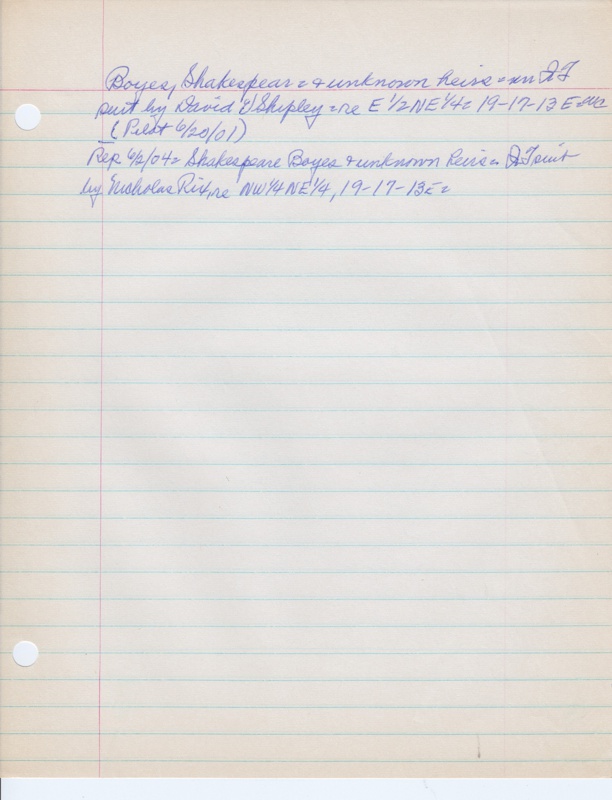 Boyes, Shakespear = & unknown heirs = in QT
suit by David V Shipley = re E 1/2 NE 1/4 = 19-17-13 E =
(Pilot 6/20/01)
Rep 6/2/04 = Shakespeare Boyes & unknown heirs = QT suit
by Nicholas Rix, re NW 1/4 NE 1/4, 19-17-13 E =